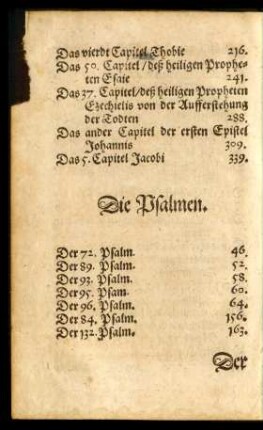 Das vierdt Capitel Thobie 216.
Das 50. Capitel /deß heiligen Prophe-
ten Esaie 241.
Das 37. Capitel/deß heiligen Propheten
Ezechielis von der Aufferstehung
der Todten 288.
Das ander Capitel der ersten Epistel
Johannis 309.
Das 5. Capitel Jacobi 339.
Die Psalmen.
Der 72. Psalm. 46.
Der 89. Psalm. 52.
Der 93. Psalm. 58.
Der 95. Psam. 60.
Der 96. Psalm. 64.
Der 84. Psalm. 156.
Der 132. Psalm. 163.
Der